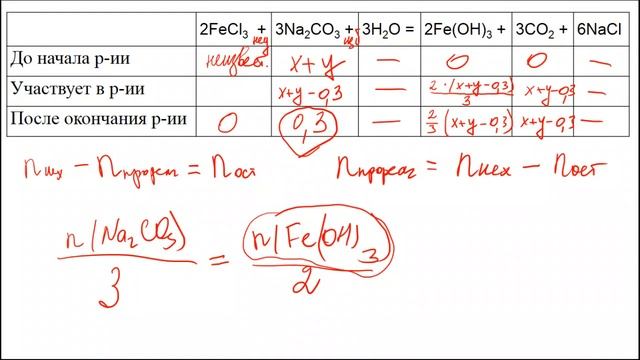 2FeCl3 + 3Na2CO3 + 3H2O = 2Fe(OH)3 + 3CO2 + 6NaCl
нед изб
До начала р-ии неизвест. x+y — 0 0 —
Участвует в р-ии x+y-0,3 2·(x+y-0,3)/3 x+y-0,3 —
После окончания р-ии 0 0,3 — 2/3 (x+y-0,3) x+y-0,3 —
nисх - nпрореаг = nост nпрореаг = nисх - nост
n(Na2CO3)/3 = n(Fe(OH)3)/2